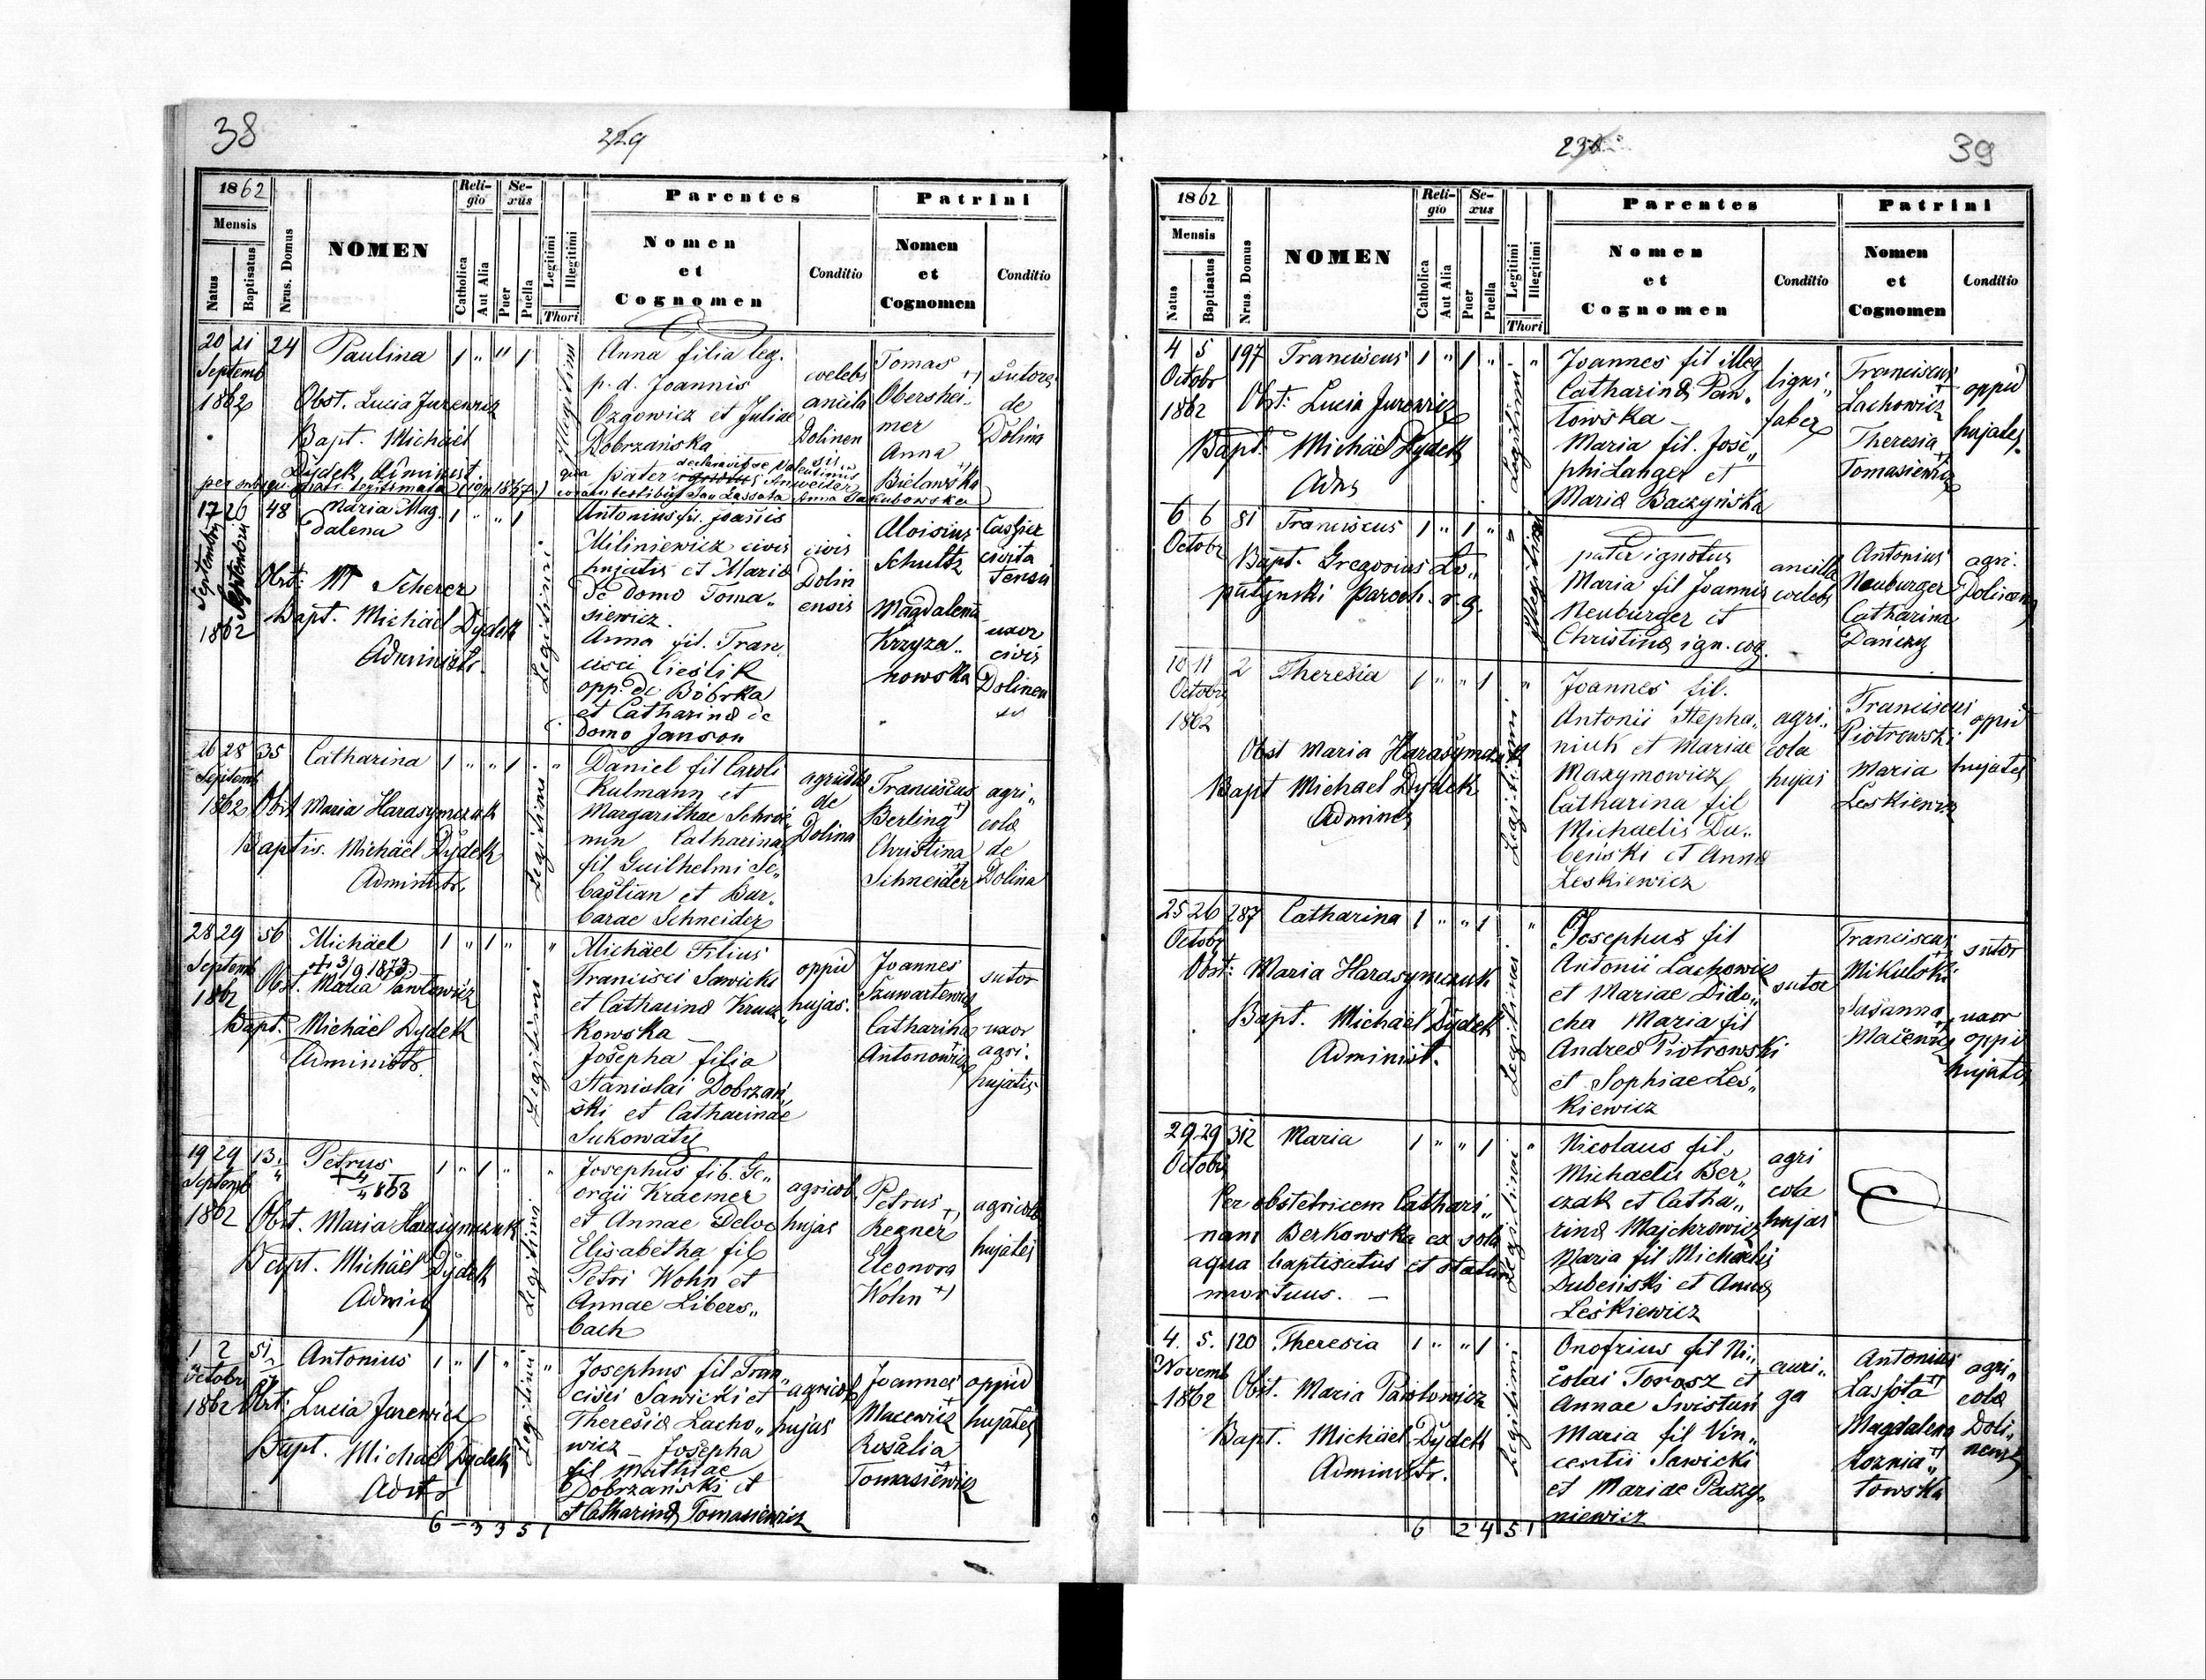 38
229
1862
Mensis
Natus
Baptisatus
Nrus. Domus
NOMEN
Reli-
gio
Catholica
Aut Alia
Se-
xus
Puer
Puella
Legitimi
Illegitimi
Thori
Parentes
Nomen
et
Cognomen
Conditio
Patrini
Nomen
et
Cognomen
Conditio
20 21 24 Paulina 1 " " 1
Septemb
1862
Obst. Lucia Jurewicz
Bapt. Michäel
Dydek Administ.
Illegitimi
Anna filia leg.
p. d. Joannis
Ozgowicz et Juliae
Dobrzańska
pater
declaravit se Valentinus
Anweiler
coram testibus Jan Lassota Anna Jakubowska
coelebs
ancila
Dolinen
sis
Tomas
Obershei
mer
Anna
Bielawska
sutores
de
Dolina
17 26 48 Maria Mag. 1 " " 1
dalena
Septembris
Septembris
1862
Obst: M Scherer
Bapt. Michäel Dydek
Administr.
Legitimi
Antonius fil. Joanis
Miliniewicz civis
hujatis et Maria
de domo Toma„
siewicz.
Anna fil. Fran
cisci Cieślik
opp. de Bóbrka
et Catharina de
domo Janson
civis
Dolin
ensis
Aloisius
Schultz
Magdalena
Krzyza„
nowska
uxor
civis
Dolinen
sis
26 28 35 Catharina 1 " " 1 "
Septemb
1862
Obst Maria Harasymczuk
Baptis. Michäel Dydek
Administr.
Legitimi
Daniel fil Caroli
Kulmann et
Margarithae
Catharina
fil Guilhelmi Se„
bastian et Bar„
barae Schneider
agricola
de
Dolina
Franciscus
Berling
Christina
Schneider
agri„
cola
de
Dolina
28 29 56 Michäel 1 " 1 " "
Septemb
1862
+ 3/9 1873
Obst. Maria Pawlowicz
Bapt. Michäel Dydek
Administr.
Legitimi
Michäel Filius
Francisci Sawicki
et Catharina Krucz„
kowska
Josepha filia
Stanislai Dobrzań„
ski et Catharinae
Sukowaty
oppid
hujas.
Joannes
Szuwartewicz
Catharina
Antonowicz
sutor
uxor
agri.
hujatis
19 29 13 Petrus 1 " 1 " "
Septemb
1862
+ 4/4 863
Obst. Maria Harasymczuk
Bapt. Michäel Dydek
Legitimi
Josephus fil. Ge„
orgii Kraemer
et Annae Delve
Elisabetha fil
Petri Wohn et
Annae Libers„
bach
agricol
hujas
Petrus
Regner
Eleonora
Wohn
agricola
hujates
1 2 51 Antonius 1 " 1 " "
Octobr
1862
Obst: Lucia Jurewicz
Bapt. Michäel Dydek
Legitimi
Josephus fil Fran„
cisci Sawicki et
Theresia Lacho„
wicz Josepha
fil Mathiae
Dobrzański et
Catharina Tomasiewicz
agricol
hujas
Joannes
Macewicz
Rosalia
Tomasiewicz
oppid
hujates
6 – 3 3 5 1
39
1862
Mensis
Natus
Baptisatus
Nrus. Domus
NOMEN
Reli-
gio
Catholica
Aut Alia
Se-
xus
Puer
Puella
Legitimi
Illegitimi
Thori
Parentes
Nomen
et
Cognomen
Conditio
Patrini
Nomen
et
Cognomen
Conditio
4 5 197 Franciscus 1 " 1 " "
Octobr
1862
Obst: Lucia Jurewicz
Bapt. Michäel Dydek
Legitimi
Joannes fil illeg
Catharina Paw„
towska
Maria fil. Jose„
phi Langer et
Maria Baczyńska
ligni„
faber
Franciscus
Lachowicz
Theresia
Tomasiewicz
oppid
hujates.
6 6 81 Franciscus 1 " 1 " "
Octobr
Bapt. Gregorius Lo„
patynski Paroch. r. g.
Illegitimi
pater ignotus
Maria fil Joannis
Neuburger et
Christina ign. cog.
ancilla
coelebs
Antonius
Neuburger
Catharina
Daniczy
agri.
10 11 2 Theresia 1 " " 1 "
Octobr
1862
Obst Maria Harasymczuk
Bapt Michael Dydek
Legitimi
Joannes fil.
Antonii Stepha„
niuk et Mariae
Maxymowicz
Catharina fil
Michaelis Du„
beński et Anna
Leskiewicz
agri„
cola
hujas
Franciscus
Piotrowski
Maria
Leskiewicz
oppid
hujates
25 26 287 Catharina 1 " " 1 "
Octobr
Obst: Maria Harasymczuk
Bapt. Michäel Dydek
Administ.
Legitimi
Josephus fil
Antonii Lachowicz
et Mariae Dido„
cha Maria fil
Andrea Piotrowski
et Sophiae Leś„
kiewicz
sutor
Franciscus
Mikulski
Susanna
Macewicz
sutor
uxor
oppi
hujatis
29 29 312 Maria 1 " " 1 "
Octobr
Per obstetricem Cathari„
nam Berkowska ex sola
aqua baptisatus et statim
mortuus. –
Legitimi
Nicolaus fil.
Michaelis Ber„
czak et Catha„
rina Majchrowicz
Maria fil Michaelis
Dubeński et Anna
Leśkiewicz
agri
cola
hujas
4. 5. 120 Theresia 1 " " 1
Novemb
1862
Obst. Maria Pawlowicz
Bapt. Michäel Dydek
Administr.
Legitimi
Onofrius fil Ni„
colai Torosz et
Annae Swistuń
Maria fil Vin„
centii Sawicki
et Mariae Paszy„
niewicz
auri„
ga
Antonius
Lassota
Magdalena
Roznia„
towska
agri„
cola
Doli„
nens
6 2 4 5 1